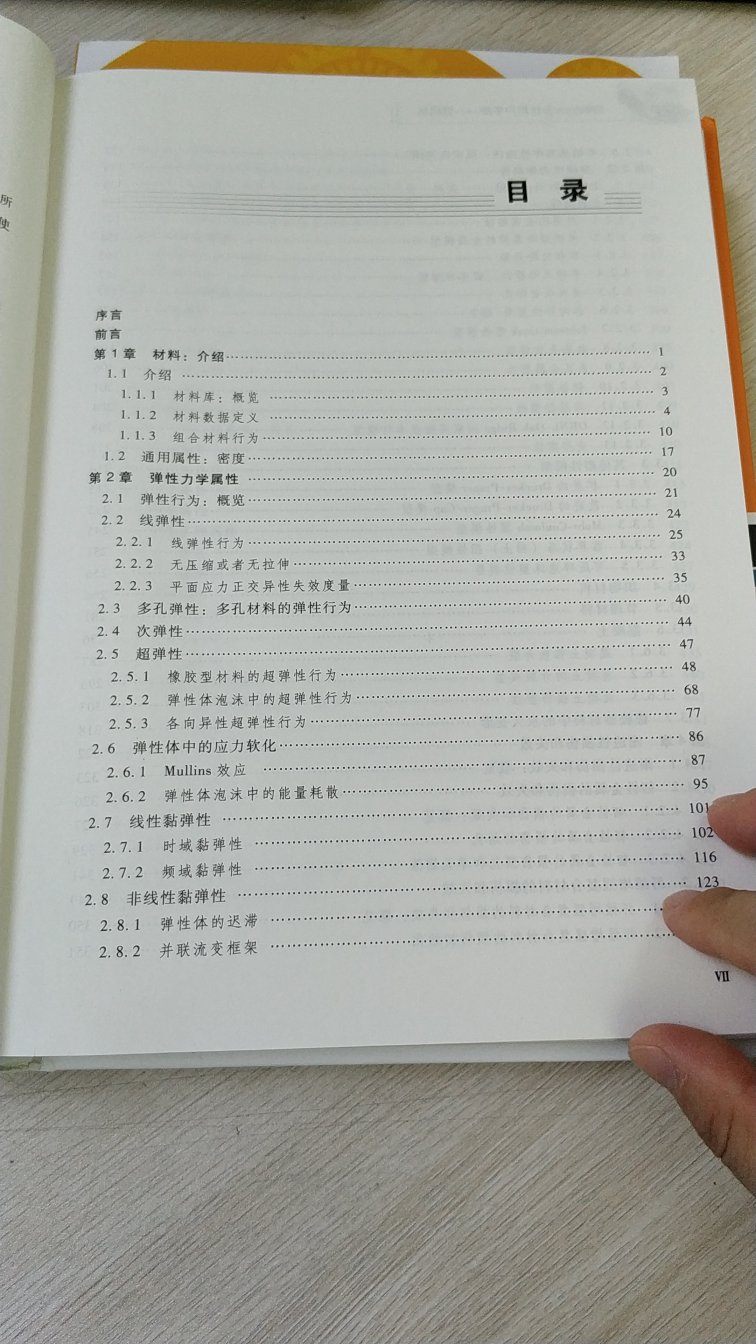 所
使
目 录
序言
前言
第1章 材料：介绍 1
1.1 介绍 2
1.1.1 材料库：概览 3
1.1.2 材料数据定义 4
1.1.3 组合材料行为 10
1.2 通用属性：密度 17
第2章 弹性力学属性 20
2.1 弹性行为：概览 21
2.2 线弹性 24
2.2.1 线弹性行为 25
2.2.2 无压缩或者无拉伸 33
2.2.3 平面应力正交异性失效度量 35
2.3 多孔弹性：多孔材料的弹性行为 40
2.4 次弹性 44
2.5 超弹性 47
2.5.1 橡胶型材料的超弹性行为 48
2.5.2 弹性体泡沫中的超弹性行为 68
2.5.3 各向异性超弹性行为 77
2.6 弹性体中的应力软化 86
2.6.1 Mullins 效应 87
2.6.2 弹性体泡沫中的能量耗散 95
2.7 线性黏弹性 101
2.7.1 时域黏弹性 102
2.7.2 频域黏弹性 116
2.8 非线性黏弹性 123
2.8.1 弹性体的迟滞
2.8.2 并联流变框架
VII